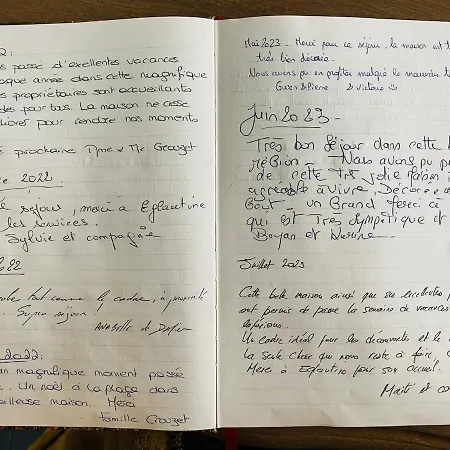 2:
s passé d'exellentes vacances
aque année dans cette magnifique
s propriétaires sont accueillants
des pour tous. La maison ne cesse
liorer pour rendre nos moments
prochaine Mme & Mr Crouzet
e 2022.
séjour, merci à Eglantine
les services.
Sylvie et compagnie
22
tout comme le cadre, à proximité
Super séjour
Anabelle et
2022:
un magnifique moment passé
. Un noël à la plage dans
eilleuse maison. Merci
Famille Crouzet
Mai 2023 - Merci pour ce séjour, la maison est t
très bien décorée.
Nous avons pu en profiter malgré le mauvais t
Gwen & Pierre & Victoria
Juin 2023 -
Très bon séjour dans cette b
région - Nous avons pu p
de cette très jolie maison
agréable à vivre, Décorée a
Goût - un Grand merci à
qui est très sympatique et
Bryan et
Juillet 2023
Cette belle maison ainsi que ses excellentes p
ont permis de passer la semaine de vacances
Un cadre idéal pour les découvertes et le
La seule chose qui nous reste à faire,
Merci à Eglantine pour son accueil.
Maïté et co